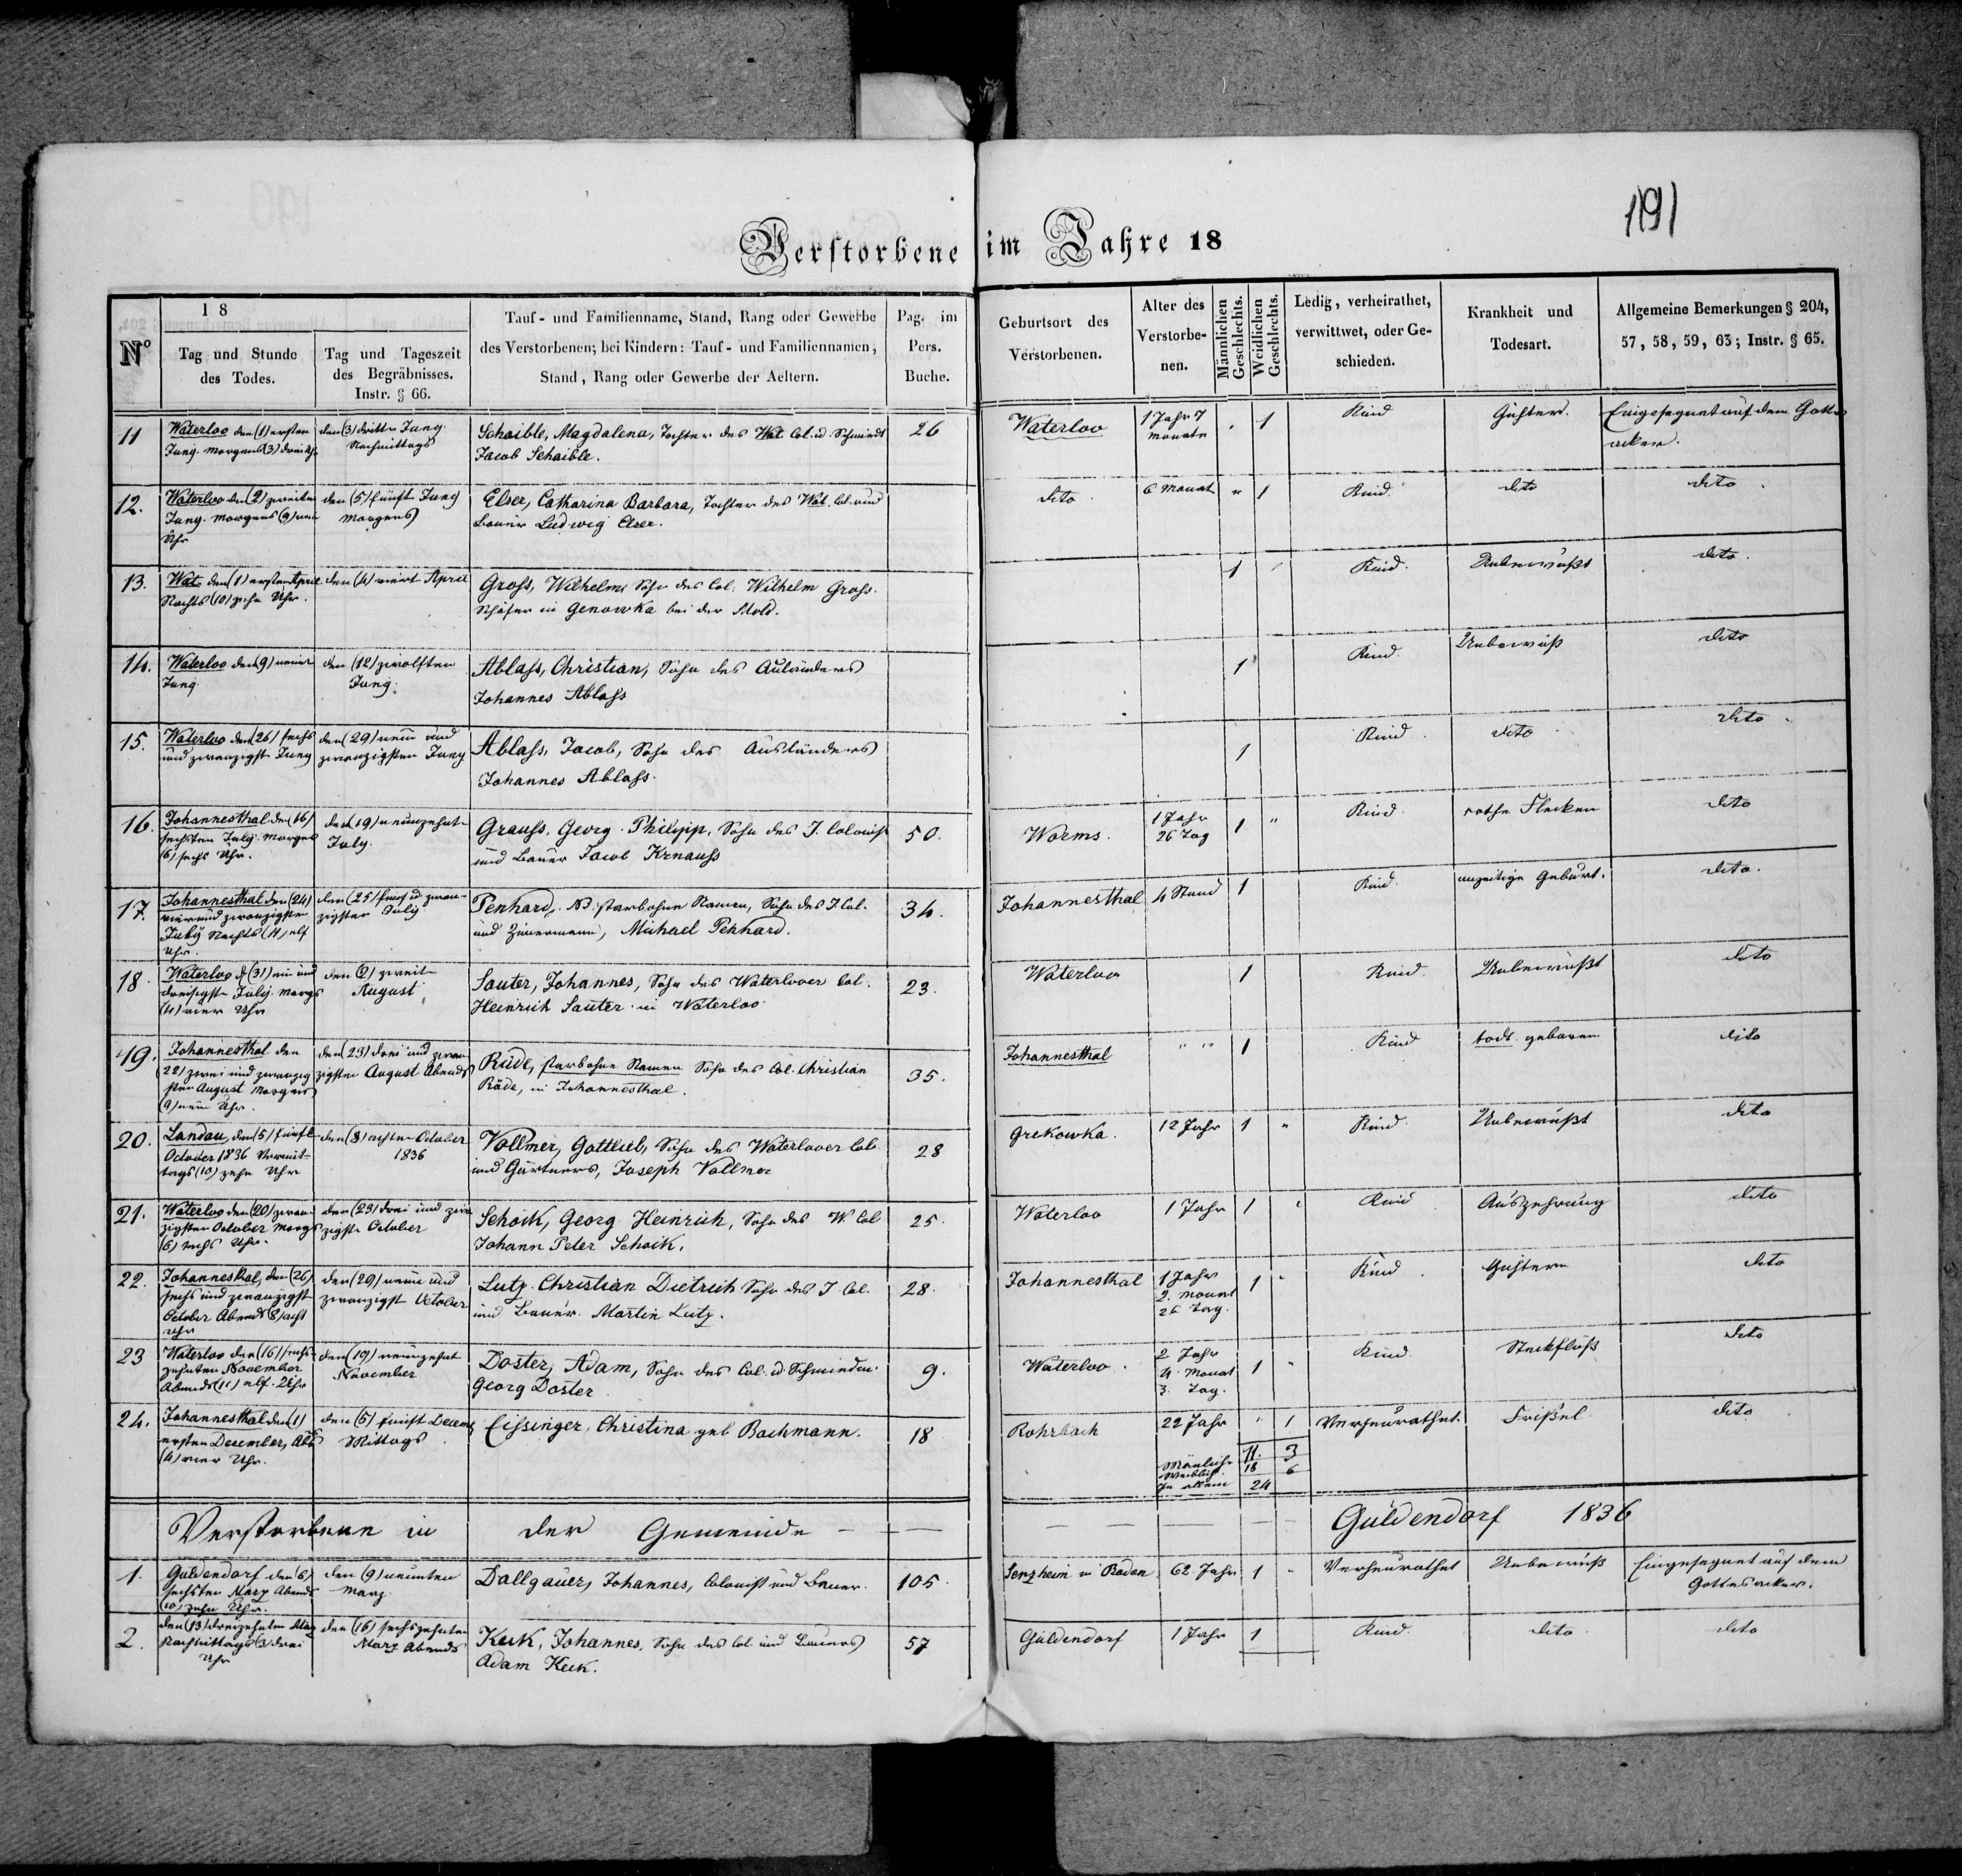 191
Verstorbene im Jahre 18
No
18
Tag und Stunde
des Todes.
Tag und Tageszeit
des Begräbnisses.
Instr. § 66.
Tauf- und Familienname, Stand, Rang oder Gewerbe
des Verstorbenen; bei Kindern: Tauf- und Familiennamen,
Stand, Rang oder Gewerbe der Aeltern.
Pag. im
Pers.
Buche.
Geburtsort des
Verstorbenen.
Alter des
Verstorbe-
nen.
Männlichen
Geschlechts.
Weiblichen
Geschlechts.
Ledig, verheirathet,
verwittwet, oder Ge-
schieden.
Krankheit und
Todesart.
Allgemeine Bemerkungen § 204,
57, 58, 59, 63; Instr. § 65.
11 Waterloo den (1) ersten den (3) dritten Juny Schaible, Magdalena, Tochter des Wat. Col. u. Schmiedt 26 Waterloo 1 Jahr 7 1 Kind Gichter. Eingesegnet auf dem Gottes
Juny. morgens (3) drei Uhr Nachmittags Jacob Schaible. monate acker.
12. Waterloo den (2) zweiten den (5) fünft Juny Elser, Catharina Barbara, Tochter des Wat. Col. und dito 6 Monat " 1 Kind. dito dito
Juny. morgens (9) neun morgens Bauer Ludwig Elser.
Uhr
13. Wat. den (1) ersten April den (4) viert April Gross, Wilhelm, Sohn des Col. Wilhelm Gross. 1 Kind. Unbewußt dito.
Nachts (10) zehn Uhr. Schäfer in Genowka bei der Mold.
14. Waterloo den (9) neunt den (12) zwölften Ablass, Christian, Sohn des Auländers 1 Kind. Unbewuß dito
Juny. Juny. Johannes Ablass
15. Waterloo den (26) sechs den (29) neun und Ablass, Jacob, Sohn des Ausländers 1 Kind. dito dito
und zwanzigst Juny zwanzigsten Juny Johannes Ablass.
16. Johannesthal den (16) den (19) neunzehnt Grauss, Georg Philipp, Sohn des J. Colonist 50. Worms. 1 Jahr 1 " Kind. rothe Flecken dito
sechsten July. morgens July. und Bauer Jacob Krnauss 26 Tag
(6) sechs Uhr.
17. Johannesthal den (24) den (25) fünf u zwan- Penhard, NB. starb ohne Namen, Sohn des J. Col. 34. Johannesthal 4 Stund 1 Kind. unzeitige Geburt. dito.
vier und zwanzigsten zigsten July und Zimermann, Michael Penhard.
July Nachts (11) elf
Uhr.
18. Waterloo d (31) ein und den (2) zweit Sauter, Johannes, Sohn des Waterlooer Col. 23. Waterloo 1 Kind. Unbewußt dito
dreisigste July. morgs August Heinrich Sauter in Waterloo
(4) vier Uhr
19. Johannesthal den den (23) drei und zwan Rüde, starb ohne Namen Sohn des Col. Christian 35. Johannesthal " " 1 Kind todt geboren dito
(22) zwei und zwanzig zigsten August Abends Räde, in Johannesthal.
sten August Morgens
(9) neun Uhr.
20. Landau, den (5) fünft den (8) achten October Vollmer, Gottlieb, Sohn des Waterlooer Col. 28 Grekowka. 12 Jahr 1 " Kind. Unbewußt dito
October 1836 Vormit- 1836 und Gärtners, Joseph Vollmer
tags (10) zehn Uhr
21. Waterloo den (20) zwan- den (23) drei und zwan Schoik, Georg Heinrich, Sohn des W. Col 25. Waterloo 1 Jahr 1 Kind Auszehrung dito
zigsten October morgs zigste October Johann Peter Schoik.
(6) sechs Uhr.
22. Johannesthal, den (26) den (29) neun und Lutz. Christian Dietrich Sohn des J. Col. 28. Johannesthal 1 Jahr 1 Kind. Gichtern dito
sechs und zwanzigst zwanzigst October und Bauer. Martin Lutz. 2. Monat
October Abends (8) acht 26 Tag.
Uhr
23 Waterloo den (16) sechs- den (19) neunzehnt Doster, Adam, Sohn des Col. u. Schmieden. 9. Waterloo. 2 Jahr 1 " Kind. Steckfluss dito
zehnten November November Georg Doster 4. Monat
Abends (11) elf Uhr 3. Tag.
24. Johannesthal den (1) den (5) fünft Decemb Eissinger, Christina geb Bachmann. 18 Rohrbach 22 Jahr " 1 Verheurathet. Frisel dito
ersten December, Abds Mittags
(4) vier Uhr.
Mänlich 11. 3
Weiblich. 18 6
In allem 24
Verstorbene in der Gemeinde Güldendorf 1836
1. Güldendorf den (6) den (9) neunten Dallgauer, Johannes, Colonist und Bauer. 105. Senzheim in Baden 62. Jahr 1 " Verheurathet Unbewuß Eingesegnet auf dem
sechsten Marz Abends Marz Gottesacker.
(10) zehn Uhr.
2. den (13) dreizehnten Marz den (16) sechszehnten Keck, Johannes, Sohn des Col. und Bauers 57 Güldendorf 1 Jahr 1 Kind. dito dito
Nachmittags (3) drei Marz Abends Adam Keck.
Uhr